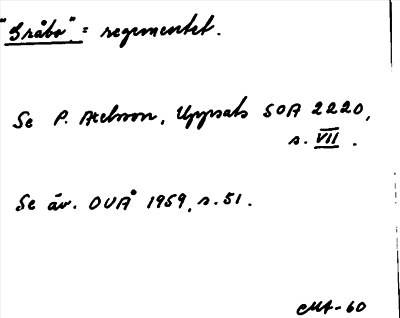 "Gråbo" = regementet.
Se P. Axelsson, Uppsats SOA 2220,
s. VII.
Se äv. OVÅ 1959, s. 51.
MA-60